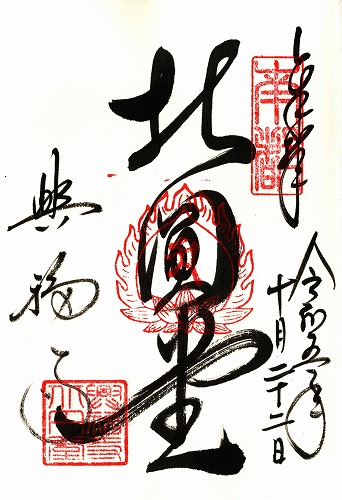 奉拝
南都
令和五年
十月二十二日
北圓堂
興福寺